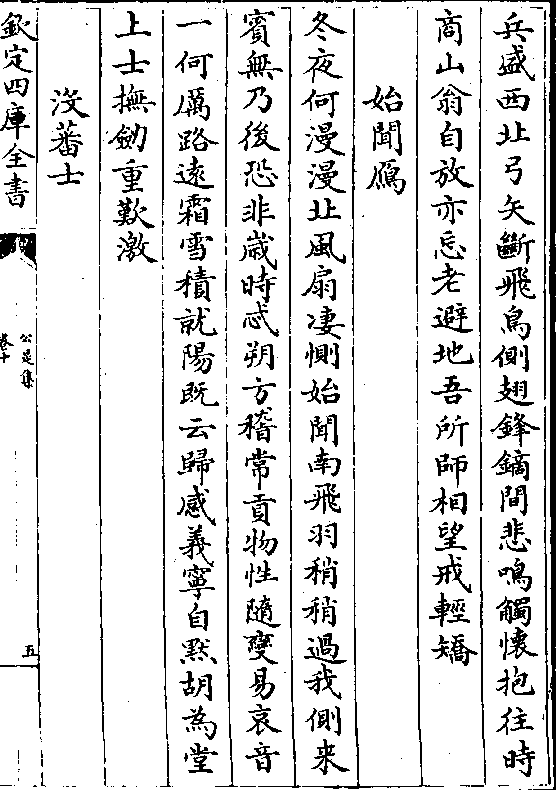 兵盛西北弓矢斷飛鳥側翅鋒鏑間悲鳴觸懷抱往時
商山翁自放亦忘老避地吾所師相望戒輕矯
始聞鴈
冬夜何漫漫北風扇凄惻始聞南飛羽稍稍過我側来
賓無乃後恐非歳時忒朔方稽常貢物性隨變易哀音
一何厲路逺霜雪積就陽既云歸感義寧自黙胡為堂
上士撫劒重歎激
沒蕃士
欽定四庫全書
公是集
卷十
五